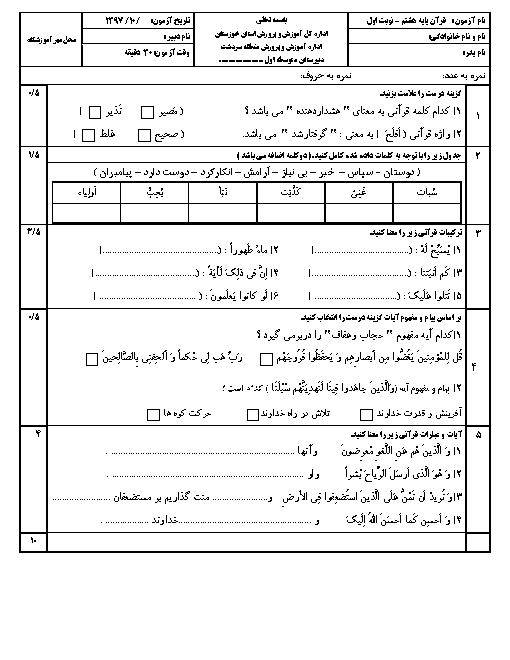 باسمه تعالی
نام آزمون: قرآن پایه هفتم - نوبت اول
اداره کل آموزش و پرورش استان خوزستان
تاریخ آزمون: /۱۰/ ۱۳۹۷
نام و نام خانوادگی:
اداره آموزش و پرورش منطقه سردشت
نام دبیر:
محل مهر آموزشگاه
نام پدر:
دبیرستان متوسطه اول
وقت آزمون: ۳۰ دقیقه
نمره به عدد: نمره به حروف:
۱ گزینه درست را علامت بزنید. ۰/۵
۱) کدام کلمه قرآنی به معنای " هشداردهنده " می باشد ؟ ( مَصیر نَذیر )
۲) واژه قرآنی ( أفلَحَ ) به معنی : " گرفتار شد " می باشد. ( صحیح غلط )
۲ جدول زیر را با توجه به کلمات داده شده کامل کنید. ( دو کلمه اضافه می باشد ) ۱/۵
( دوستان - سپاس - خبر - بی نیاز - آرامش - انکار کرد - دوست دارد - پیامبران )
سُبات غَنِیّ کَذَّبَت نَبَأ یُحِبُّ أولیاء
۳ ترکیبات قرآنی زیر را معنا کنید. ۳/۵
۱) یُسَبِّحُ لَهُ : (..............) ۲) ماءً طَهوراً : (..............)
۳) کَم أنبَتنا : (..............) ۴) إنَّ فی ذلِکَ لَآیَةً : (..............)
۵) نَتلوا عَلَیکَ : (..............) ۶) لَو کانوا یَعلَمونَ : (..............)
۴ بر اساس پیام و مفهوم آیات گزینه درست را انتخاب کنید. ۰/۵
۱) کدام آیه مفهوم " حجاب و عفاف " را در بر می گیرد ؟
قُل لِلمُؤمِنینَ یَغُضُّوا مِن أبصارِهِم وَ یَحفَظُوا فُروجَهُم رَبِّ هَب لی حُکماً وَ ألحِقنی بِالصّالِحینَ
۲) پیام و مفهوم آیه (وَالَّذینَ جاهَدوا فینا لَنَهدِیَنَّهُم سُبُلَنا ) کدام است ؟
آفرینش و قدرت خداوند تلاش در راه خداوند حرکت کوه ها
۵ آیات و عبارات قرآنی زیر را معنا کنید. ۴
۱) وَ الَّذینَ هُم عَنِ اللَّغوِ مُعرِضونَ و آنها ..............
۲) وَ هُوَ الَّذی أرسَلَ الرِّیاحَ بُشراً و او ..............
۳) وَ نُریدُ أن نَمُنَّ عَلَی الَّذینَ استُضعِفوا فِی الأرضِ و.............. منت گذاریم بر مستضعفان ..............
۴) وَ أحسِن کَما أحسَنَ اللهُ إلَیکَ و ..............خداوند ..............
۱۰